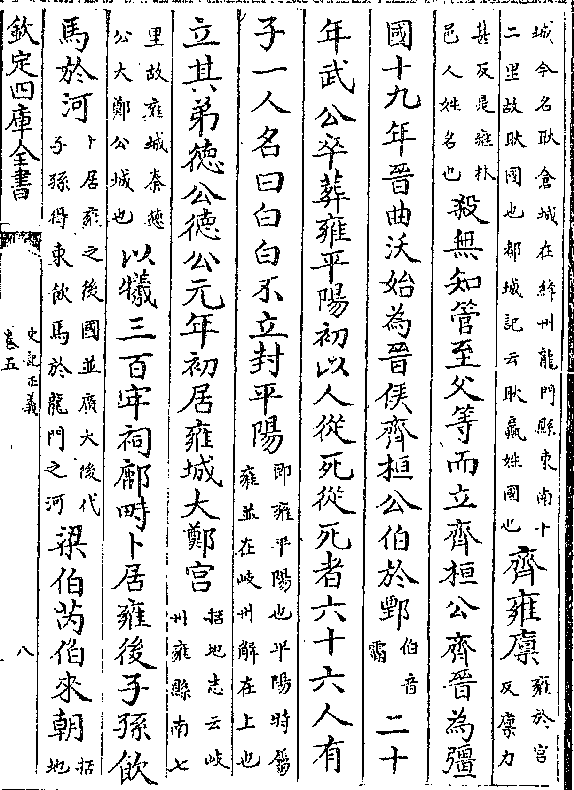 城今名耿倉城在絳州龍門縣東南十
二里故耿國也都城記云耿嬴姓國也
齊雍廩
雍於宮
反廩力
甚反是雍林
邑人姓名也
殺無知管至父等而立齊桓公齊晉為彊
國十九年晉曲沃始為晉侯齊桓公伯於鄄
伯音
霸
二十
年武公卒葬雍平陽初以人從死從死者六十六人有
子一人名曰白白不立封平陽
即雍平陽也平陽時屬
雍並在岐州解在上也
立其弟德公德公元年初居雍城大鄭宫
括地志云岐
州雍縣南七
里故雍城秦德
公大鄭公城也
以犧三百牢祠鄜畤卜居雍後子孫飲
馬於河
卜居雍之後國並廣大後代
子孫得東飲馬於龍門之河
梁伯芮伯來朝
括
地
欽定四庫全書
史記正義
卷五
八